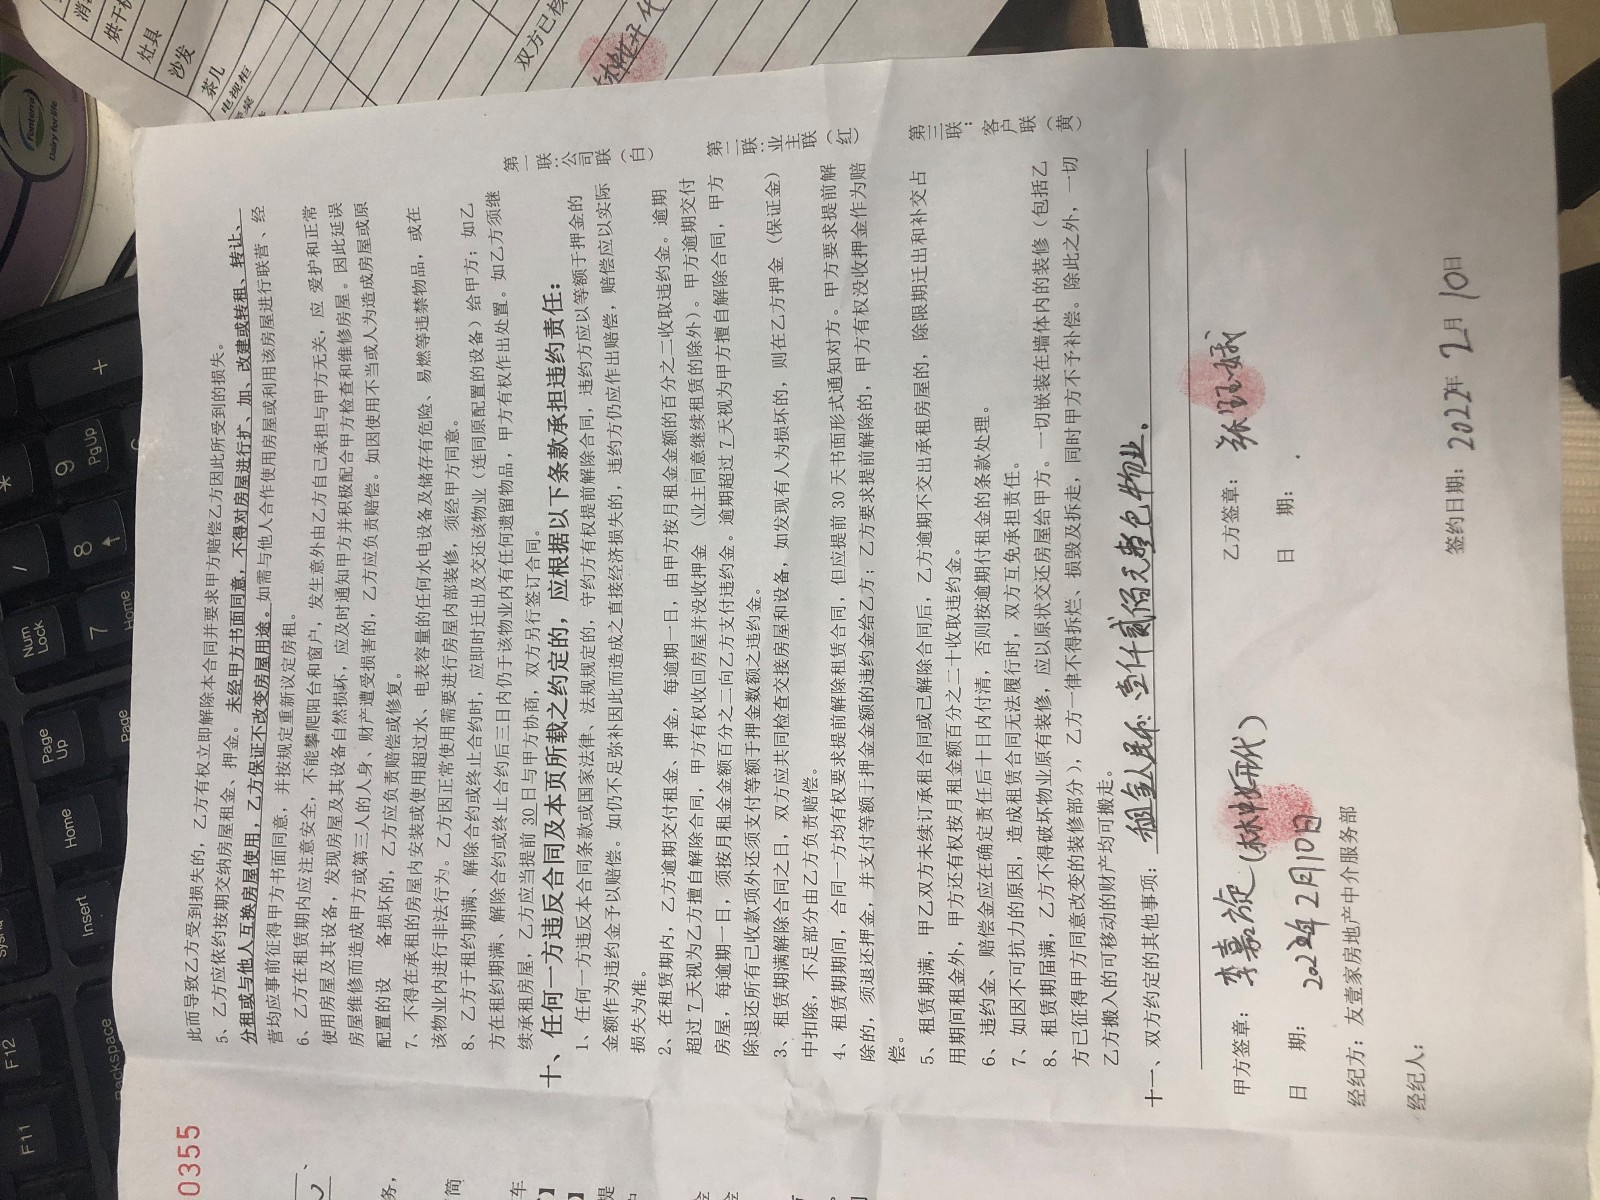 此而导致乙方受到损失的，乙方有权立即解除本合同并要求甲方赔偿乙方因此所受到的损失。
5、乙方应依约按期交纳房屋租金、押金。未经甲方书面同意，不得对房屋进行扩、加、改建或转租、转让、
分租或与他人互换房屋使用，乙方保证不改变房屋用途。如需与他人合作使用房屋或利用该房屋进行联营、经
营均应事前征得甲方书面同意，并按规定重新议定房租。
6、乙方在租赁期内应注意安全，不能攀爬阳台和窗户，发生意外由乙方自己承担与甲方无关，应 爱护和正常
使用房屋及其设备，发现房屋及其设备自然损坏，应及时通知甲方并积极配合甲方检查和维修房屋。因此延误
房屋维修而造成甲方或第三人的人身、财产遭受损害的，乙方应负责赔偿。如因使用不当或人为造成房屋或原
配置的设 备损坏的，乙方应负责赔偿或修复。
7、不得在承租的房屋内安装或使用超过水、电表容量的任何水电设备及储存有危险、易燃等违禁物品，或在
该物业内进行非法行为。乙方因正常使用需要进行房屋内部装修，须经甲方同意。
8、乙方于租约期满、解除合约或终止合约时，应即时迁出及交还该物业（连同原配置的设备）给甲方；如乙
方在租约期满、解除合约或终止合约后三日内仍于该物业内有任何遗留物品，甲方有权作出处置。如乙方须继
续承租房屋，乙方应当提前 30 日与甲方协商，双方另行签订合同。
十、任何一方违反合同及本页所载之约定的，应根据以下条款承担违约责任：
1、任何一方违反本合同条款或国家法律、法规规定的，守约方有权提前解除合同，违约方应以等额于押金的
金额作为违约金予以赔偿。如仍不足弥补因此而造成之直接经济损失的，违约方仍应作出赔偿，赔偿应以实际
损失为准。
2、在租赁期内，乙方逾期交付租金、押金，每逾期一日，由甲方按月租金金额的百分之二收取违约金。逾期
超过 7 天视为乙方擅自解除合同，甲方有权收回房屋并没收押金（业主同意继续租赁的除外）。甲方逾期交付
房屋，每逾期一日，须按月租金金额百分之二向乙方支付违约金。逾期超过 7 天视为甲方擅自解除合同，甲方
除退还所有已收款项外还须支付等额于押金数额之违约金。
3、租赁期满解除合同之日，双方应共同检查交接房屋和设备，如发现有人为损坏的，则在乙方押金（保证金）
中扣除，不足部分由乙方负责赔偿。
4、租赁期期间，合同一方均有权要求提前解除租赁合同，但应提前 30 天书面形式通知对方。甲方要求提前解
除的，须退还押金，并支付等额于押金金额的违约金给乙方；乙方要求提前解除的，甲方有权没收押金作为赔
偿。
5、租赁期满，甲乙双方未续订承租合同或已解除合同后，乙方逾期不交出承租房屋的，除限期迁出和补交占
用期间租金外，甲方还有权按月租金额百分之二十收取违约金。
6、违约金、赔偿金应在确定责任后十日内付清，否则按逾期付租金的条款处理。
7、如因不可抗力的原因，造成租赁合同无法履行时，双方互免承担责任。
8、租赁期届满，乙方不得破坏物业原有装修，应以原状交还房屋给甲方。一切嵌装在墙体内的装修（包括乙
方已征得甲方同意改变的装修部分），乙方一律不得拆烂、损毁及拆走，同时甲方不予补偿。除此之外，一切
乙方搬入的可移动的财产均可搬走。
十一、双方约定的其他事项：租金人民币壹仟贰佰元整包物业.
甲方签章：李嘉旋（林坤好代） 乙方签章：张钰娥
日 期：2022年2月10日 日 期：
经纪方：友壹家房地产中介服务部
经纪人： 签约日期：2022年 2月 10日
第一联：公司联（白）
第二联：业主联（红）
第三联：客户联（黄）
0355
消
烘干机
灶具
沙发
茶几
电视柜
双方已核
Fonterra
Dairy for life
F11
F12
Backspace
Insert
Home
Page Up
Page
Num Lock
7
Home
8
9
PgUp
/
*
+